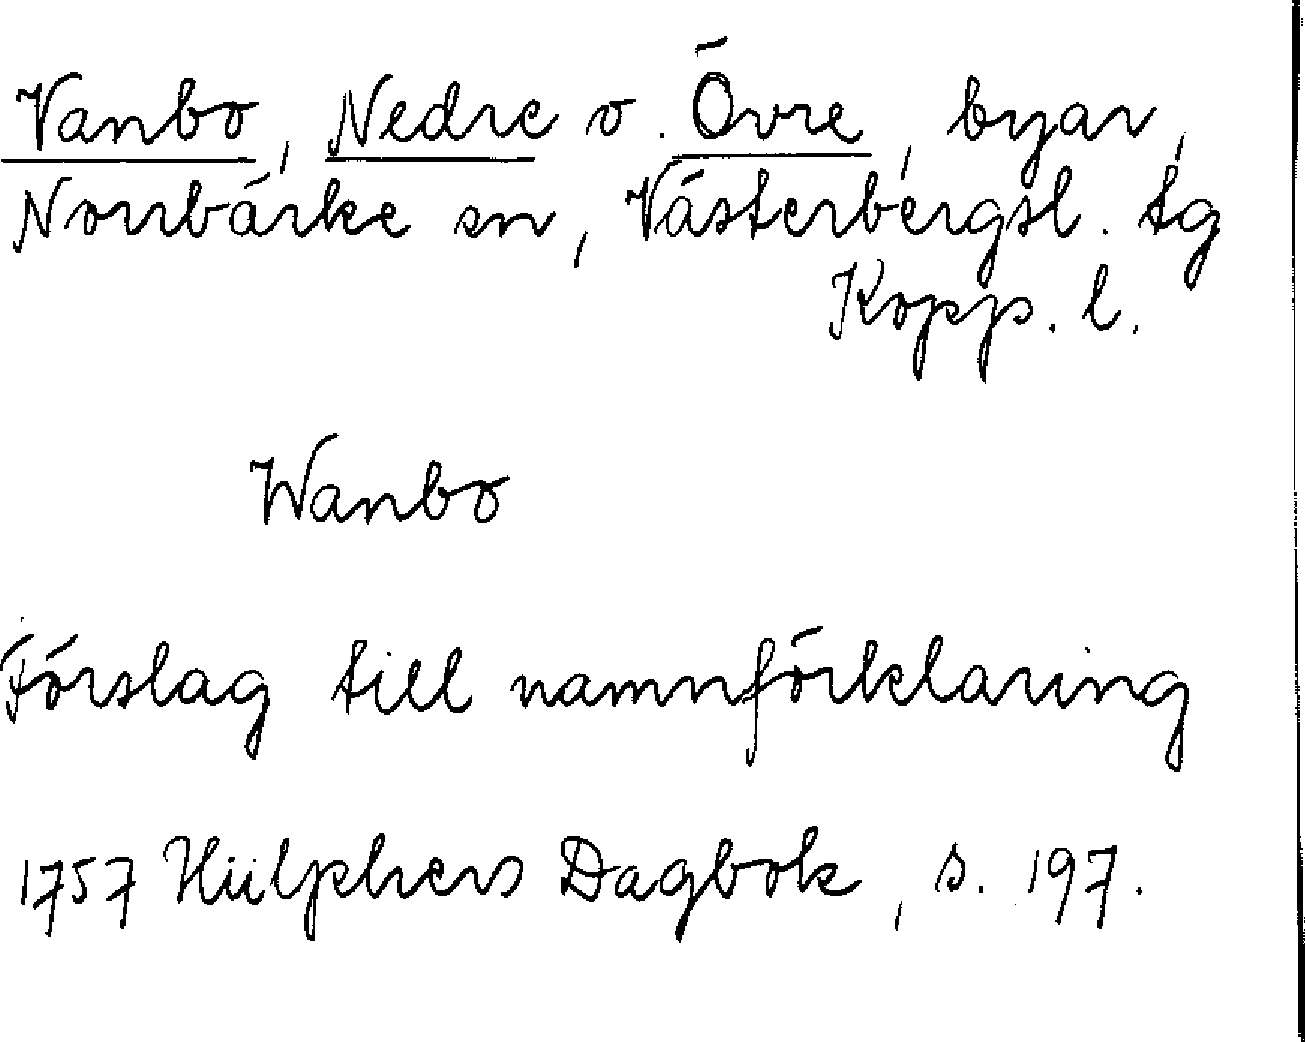 Vanbo, Nedre o. Övre, byar,
Norrbärke sn, Västerbergsl. tg
Kopp. l.
Wanbo
Förslag till namnförklaring
1757 Hülphers Dagbok, s. 197.